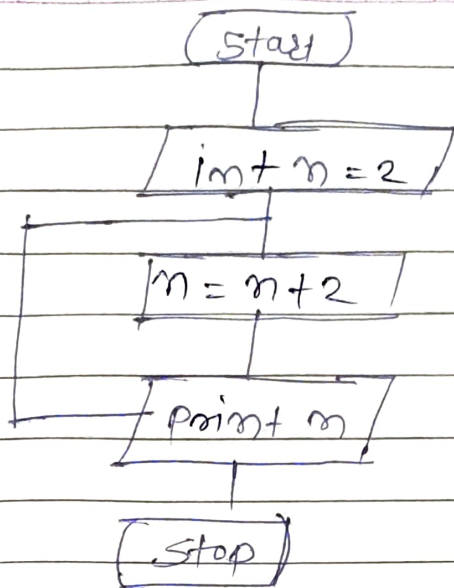 Start
int n = 2
n = n + 2
Print n
Stop